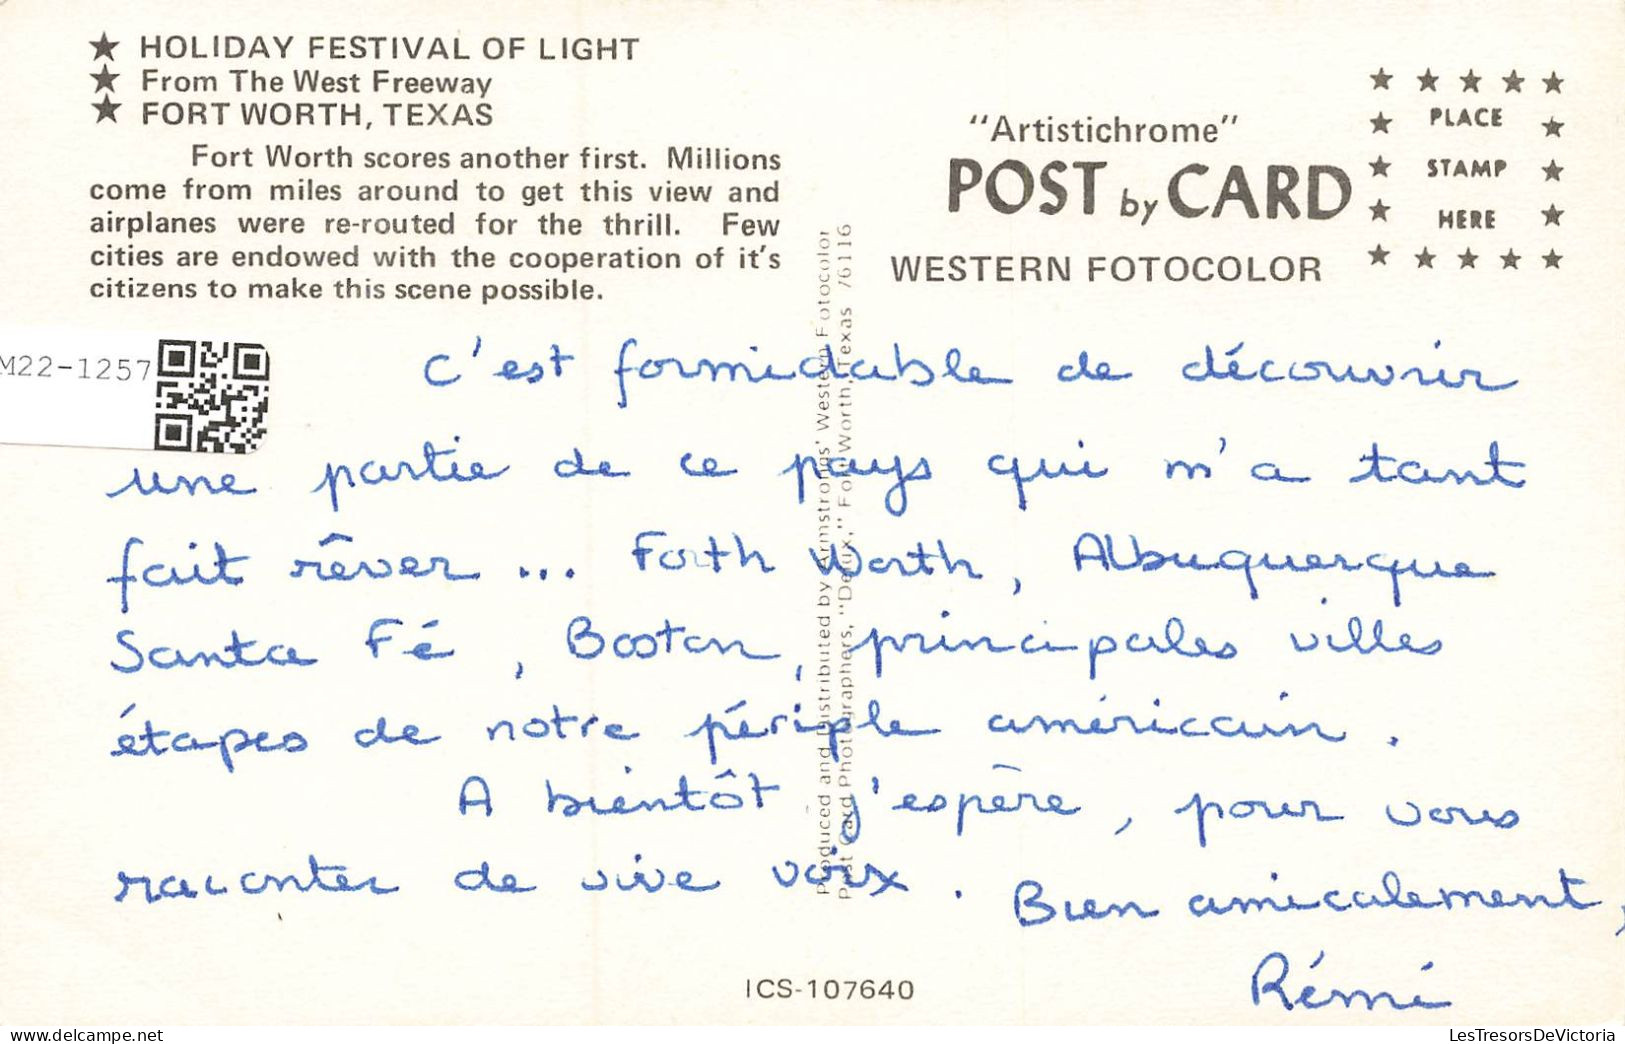 ★ HOLIDAY FESTIVAL OF LIGHT
★ From The West Freeway
★ FORT WORTH, TEXAS
Fort Worth scores another first. Millions
come from miles around to get this view and
airplanes were re-routed for the thrill. Few
cities are endowed with the cooperation of it's
citizens to make this scene possible.
"Artistichrome"
POST by CARD
WESTERN FOTOCOLOR
PLACE
STAMP
HERE
M22-1257
Produced and Distributed by Armstrongs' Western Fotocolor
Post Card Photographers, "Delux," Fort Worth, Texas 76116
C'est formidable de découvrir
une partie de ce pays qui m'a tant
fait rêver ... Forth Worth, Albuquerque
Santa Fé, Boston, principales villes
étapes de notre périple américain.
A bientôt j'espère, pour vous
raconter de vive voix.
Bien amicalement,
Rémi
ICS-107640
LesTresorsDeVictoria